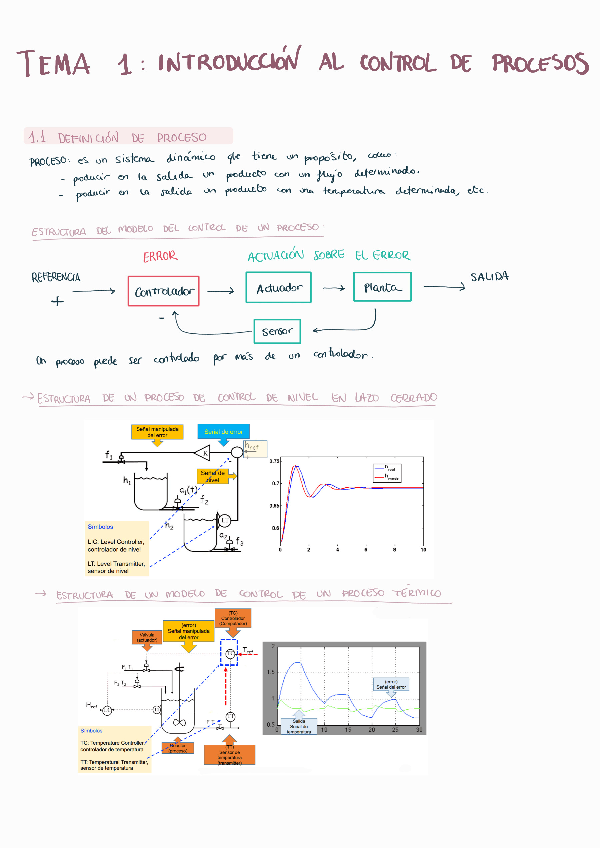 TEMA 1: INTRODUCCIÓN AL CONTROL DE PROCESOS
1.1 DEFINICIÓN DE PROCESO
PROCESO: es un sistema dinámico que tiene un propósito, como:
- producir en la salida un producto con un flujo determinado.
- producir en la salida un producto con una temperatura determinada, etc.
ESTRUCTURA DEL MODELO DEL CONTROL DE UN PROCESO:
ERROR
ACTUACIÓN SOBRE EL ERROR
REFERENCIA
+
Controlador
Actuador
Planta
SALIDA
-
Sensor
Un proceso puede ser controlado por más de un controlador.
→ ESTRUCTURA DE UN PROCESO DE CONTROL DE NIVEL EN LAZO CERRADO
Señal manipulada
del error
Señal de error
Señal de
nivel
f1
K
h1
a1(t)
f2
h2
f3
Símbolos
LC: Level Controller,
controlador de nivel
LT: Level Transmitter,
sensor de nivel
0.75
0.7
0.65
0.6
0 2 4 6 8 10
→ ESTRUCTURA DE UN MODELO DE CONTROL DE UN PROCESO TÉRMICO
(TC)
Controlador
(Computador)
(error)
Señal manipulada
del error
Válvula
(actuador)
TC
Tref
Href
Reactor
(proceso)
(TT)
Sensor de
temperatura
(transmitter)
Símbolos
TC: Temperature Controller/
controlador de temperatura
TT: Temperature Transmitter,
sensor de temperatura
2
1.5
1
0.5
0 5 10 15 20 25 30
(error)
Señal del error
Salida
Señal de
temperatura